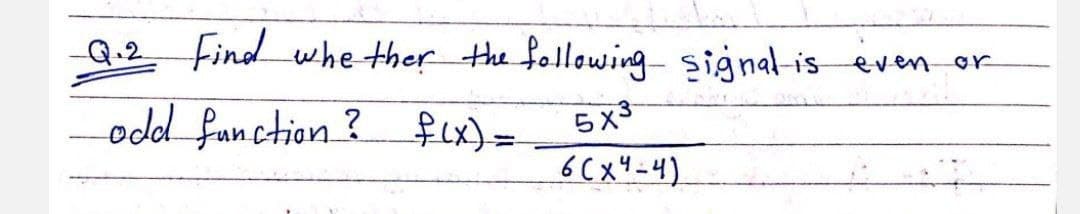 Q.2 Find whether the following signal is even or
odd function? f(x) = 5x³
6(x⁴-4)